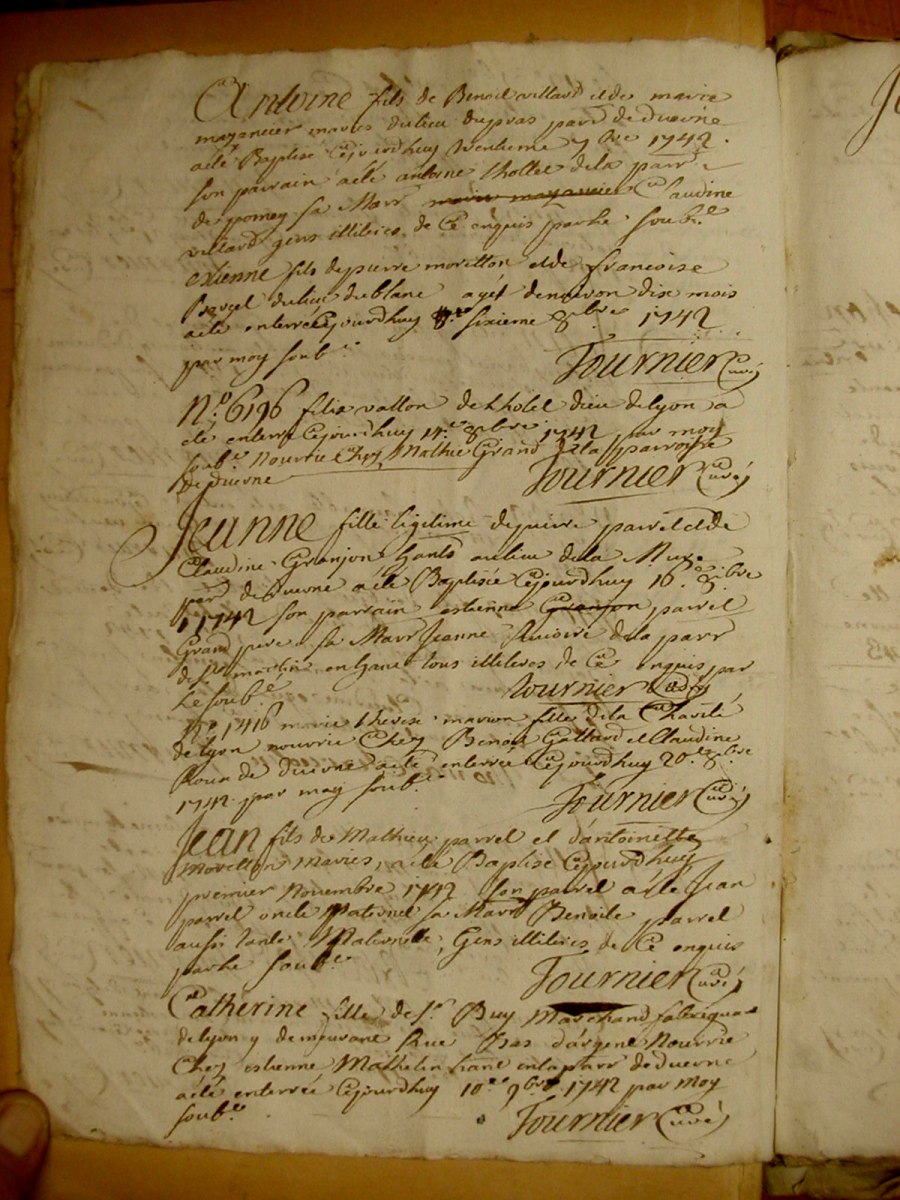 Antoine fils de Benoit villard et de marie
mazancier maries du lieu du pras parr. de Duerne
a été Baptisé cejourdhuy trentieme 7bre 1742.
son parrain a été antoine thollet de la parr.
de pomey sa Marr. marie mazancier Claudine
villard gens illiteres de ce enquis par le soub.é
estienne fils de pierre moretton et de francoise
du lieu du blanc agé denviron dix mois
a été enterré cejourdhuy sixieme 8bre 1742
par moy soub.é
Fournier Curé
N.o 6196 felix vallon de L'hotel dieu de lyon a
eté enterré cejourdhuy 14.e 8bre 1742 par moy
soub.é Nourrie Chez Mathie Grand de la parroisse
de Duerne
Fournier Curé
Jeanne fille legitime de pierre parrel et de
Claudine Granjon hants au lieu de la Mure
parr. de Duerne a eté Baptisée cejourdhuy 16.e 8.bre
1742 son parrain estienne Granjon parrel
Grand pere sa Marr Jeanne de la parr
de st martin en haut tous illiteres de ce enquis par
Le soub.é
Fournier Curé
N.o 1416 marie therese marion fille de la Charité
de lyon nourrie Chez Benoit et Claudine
de Duerne a eté enterrée cejourdhuy 20.e 8.bre
1742 par moy soub.é
Fournier Curé
Jean fils de Mathieu parrel et d'antoinette
Moretton Maries, a eté Baptisé cejourdhuy
premier Novembre 1742 son parrel a été Jean
parrel oncle Paternel sa Marr Benoite parrel
aussi tante Paternelle, Gens illiteres de ce enquis
par le soub.é
Fournier Curé
Catherine fille de s.r Buy Marchand fabriquant
de lyon y demeurant Rue Bas d'argent Nourrie
Chez estienne Mathelin hant en la parr de Duerne
a été enterrée cejourdhuy 10.e 9bre 1742 par Moy
soub.é
Fournier Curé